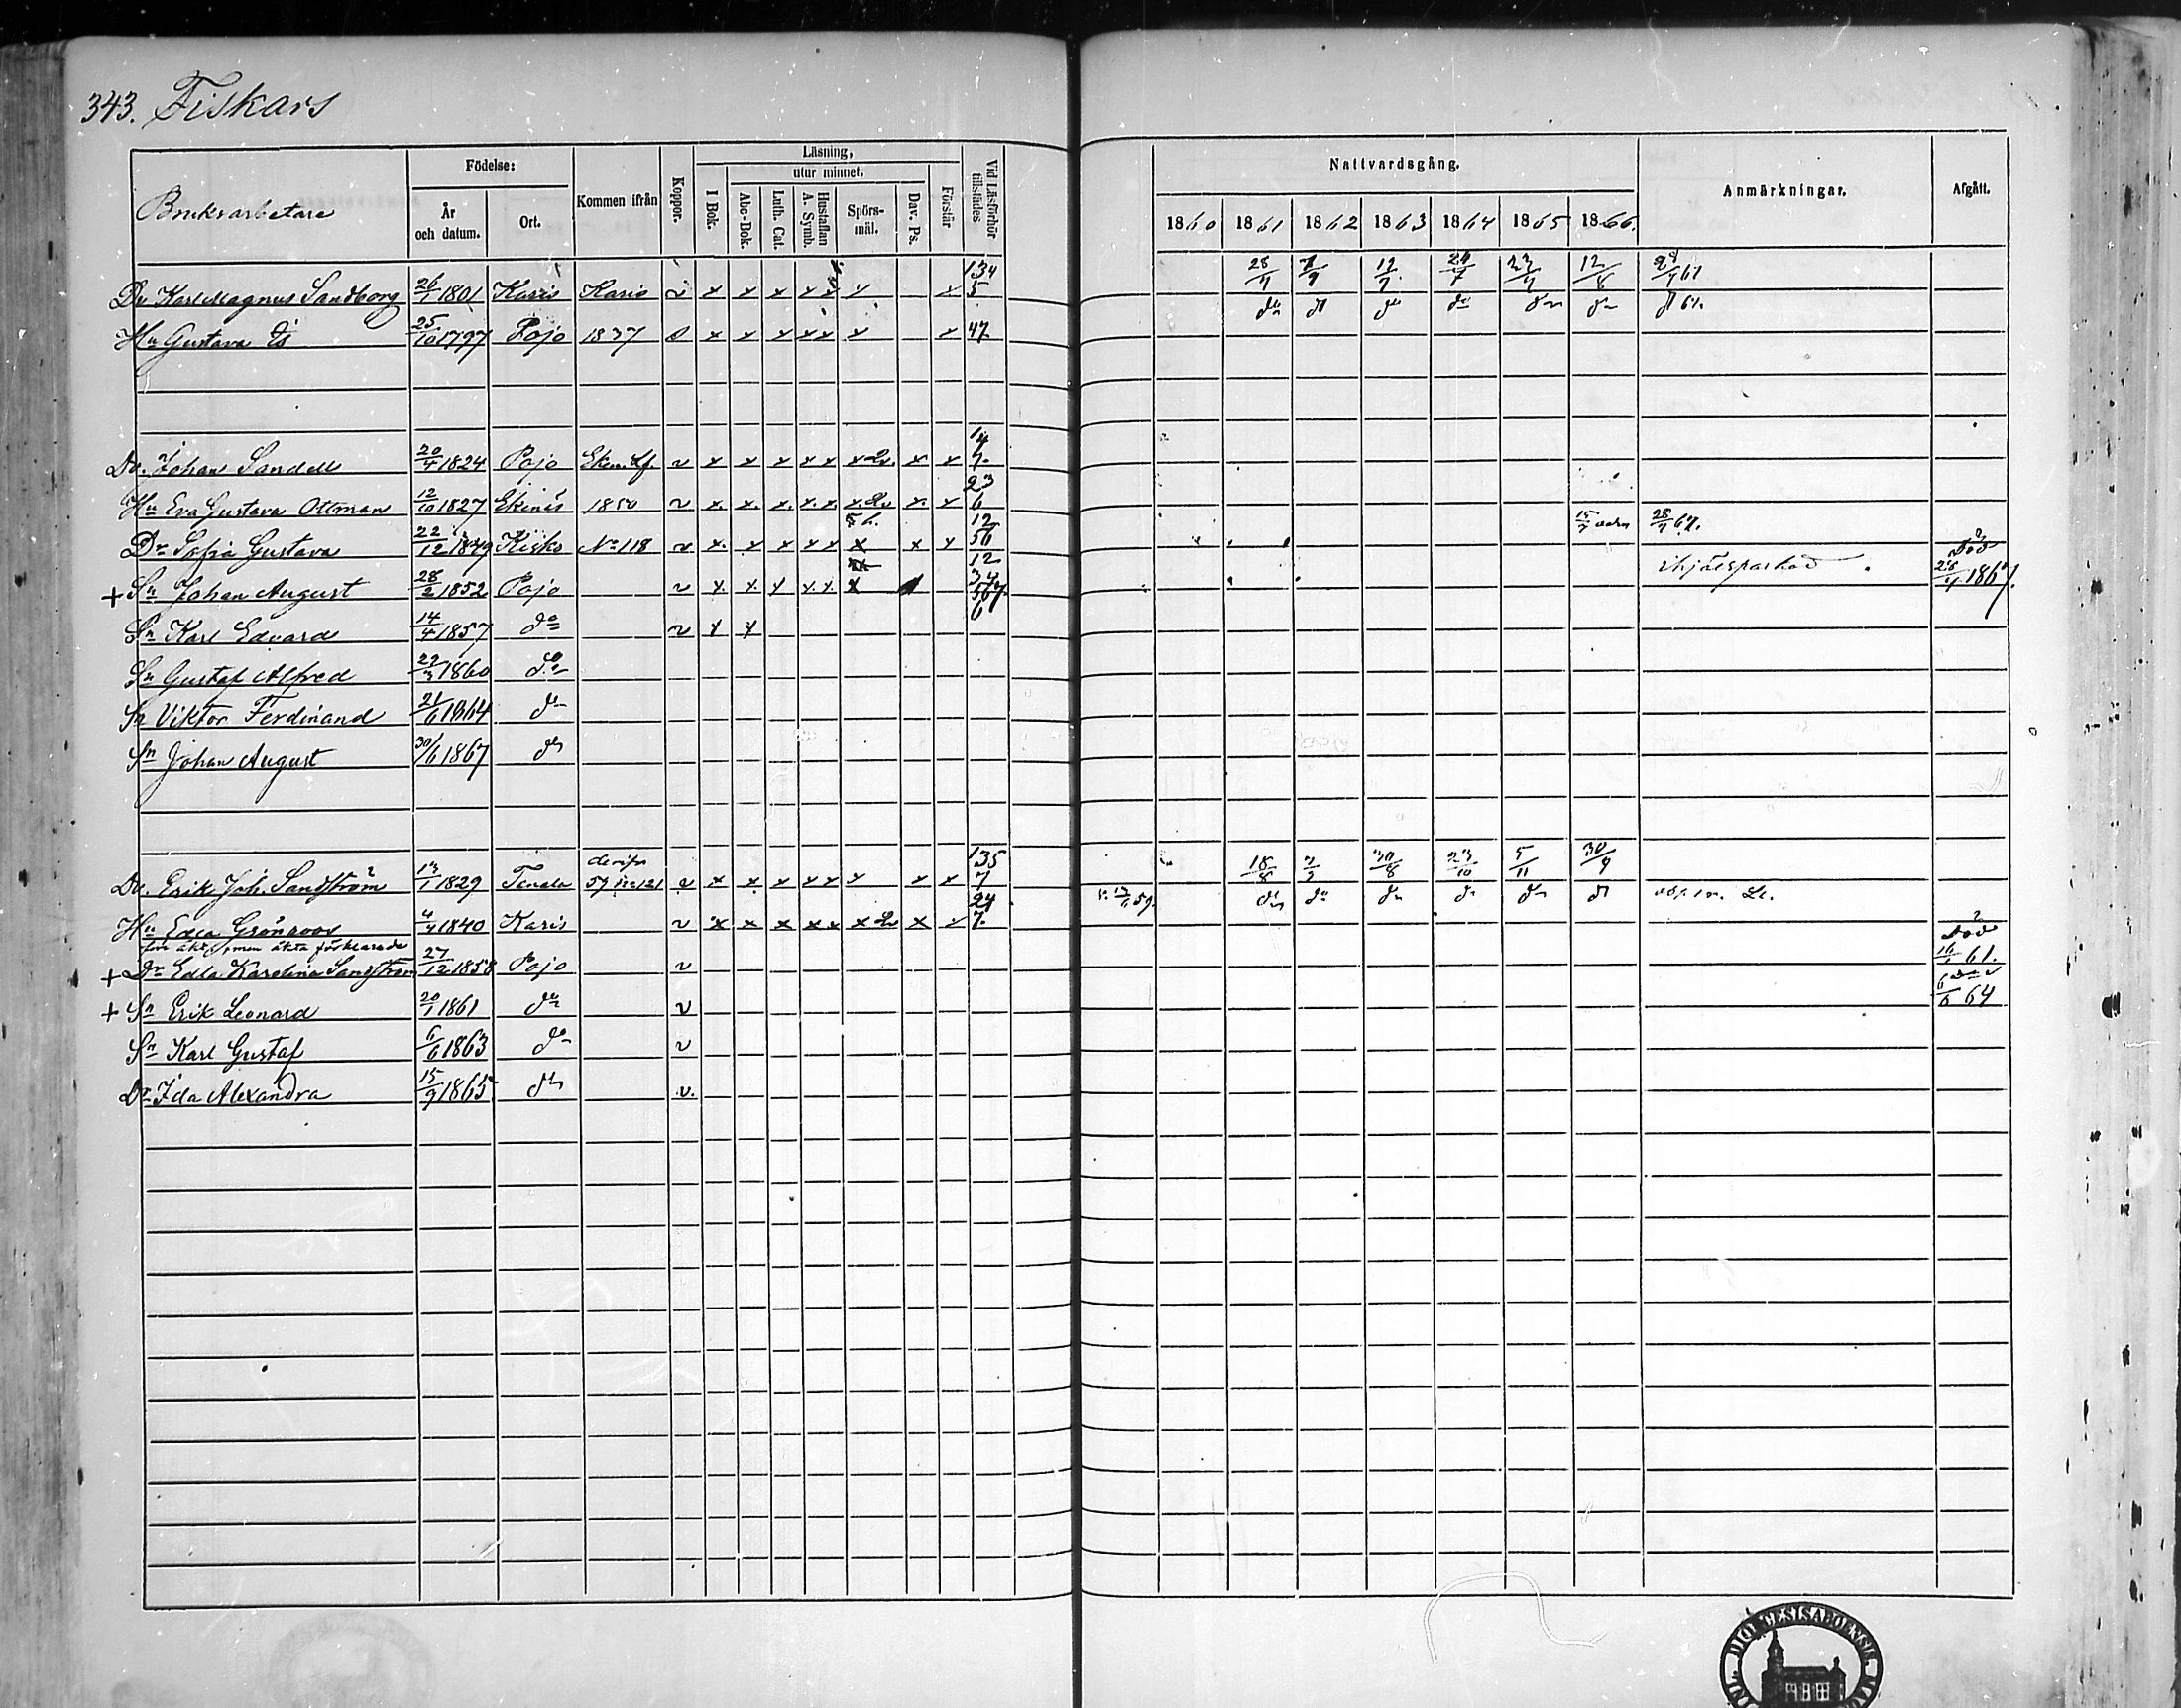 343. Fiskars
Bruksarbetare
Födelse:
År och datum.
Ort.
Kommen ifrån
Koppor.
Läsning,
I Bok.
utur minnet.
Abc-Bok.
Luth. Cat.
Hustaflan A. Symb.
Spörsmål.
Dav. Ps.
Förstår
Vid Läsförhör tillstädes
Nattvardsgång.
1860 1861 1862 1863 1864 1865 1866.
Anmärkningar.
Afgått.
Karl Magnus Sandborg 26/1 1801 Karis Karis v x x x x x x x 134 5 28/7 7/9 12/7 24/7 23/7 12/8
Hu Gustava 25/10 1797 Pojo 1837 x x x x x x x 47
Do. Johan Sandell 20/4 1824 Pojo v x x x x x x x x
Hu Eva Gustava Ottman 12/10 1827 Ekenäs 1850 v x. x. x. x. x. x. x 23 6
Dr Sofia Gustava 22/12 1849 Kisko No 118 v x. x x x x x x x 12 56 28/7 67.
+ Sn Johan August 28/2 1852 Pojo v x. x. x x. x. x ihjälsparkad Död 26/4 1867.
Sn Karl Edvard 14/4 1857 do v x x
Sn Gustaf Alfred 22/3 1860 do
Sn Viktor Ferdinand 21/6 1864 do
Sn Johan August 30/6 1867 do
Do. Erik Joh. Sandström 13/1 1829 Tenala 59 No 121 v x x x x x x x x 135 7 18/8 30/8 23/10 5/11 30/9
Hu Edla Grönroos 4/4 1840 Karis v x x x x x x x x 24 7. do do do do do do
före äkt., men äkta förklarade
+ Dr Edla Karolina Sandström 27/12 1858 Pojo v Död 61.
+ Sn Erik Leonard 20/1 1861 do v 6/6 64
Sn Karl Gustaf 6/6 1863 do v
Dr Ida Alexandra 15/9 1865 do v.